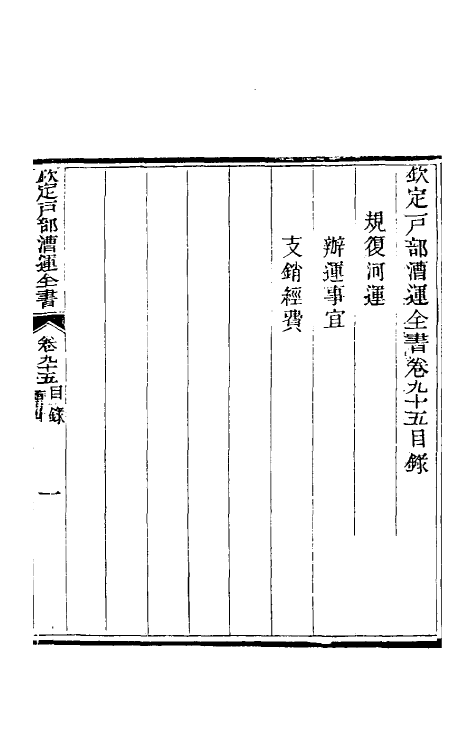 欽定戶部漕運全書卷九十五目錄
規復河運
辦運事宜
支銷經費
欽定戶部漕運全書
卷九十五目錄
一